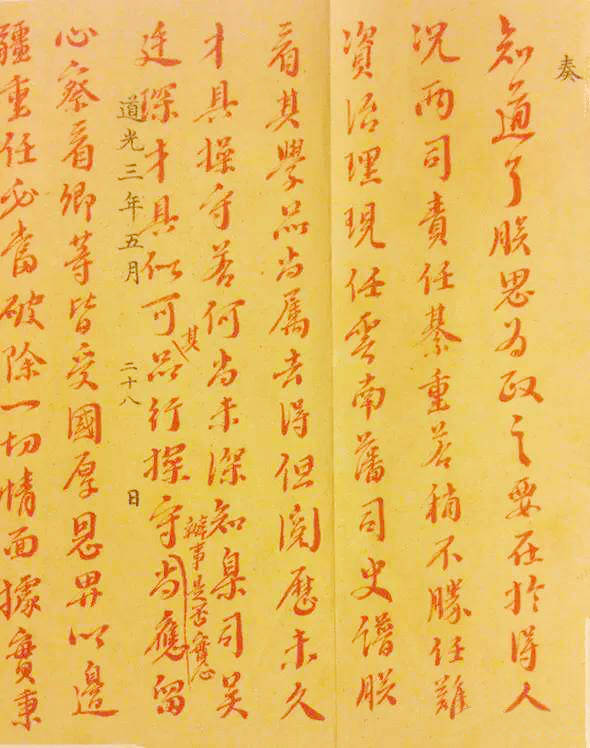 奏
知道了朕思為政之要在於得人
況兩司責任綦重若稍不勝任難
資治理現任雲南藩司史譜朕
看其學品尚屬去得但閱歷未久
才具操守若何尚未深知臬司吴
廷琛才具似可其品行操守尚應留
辦事是否實心
道光三年五月二十八日
心察看卿等皆受國厚恩畀以邊
疆重任必當破除一切情面據實秉